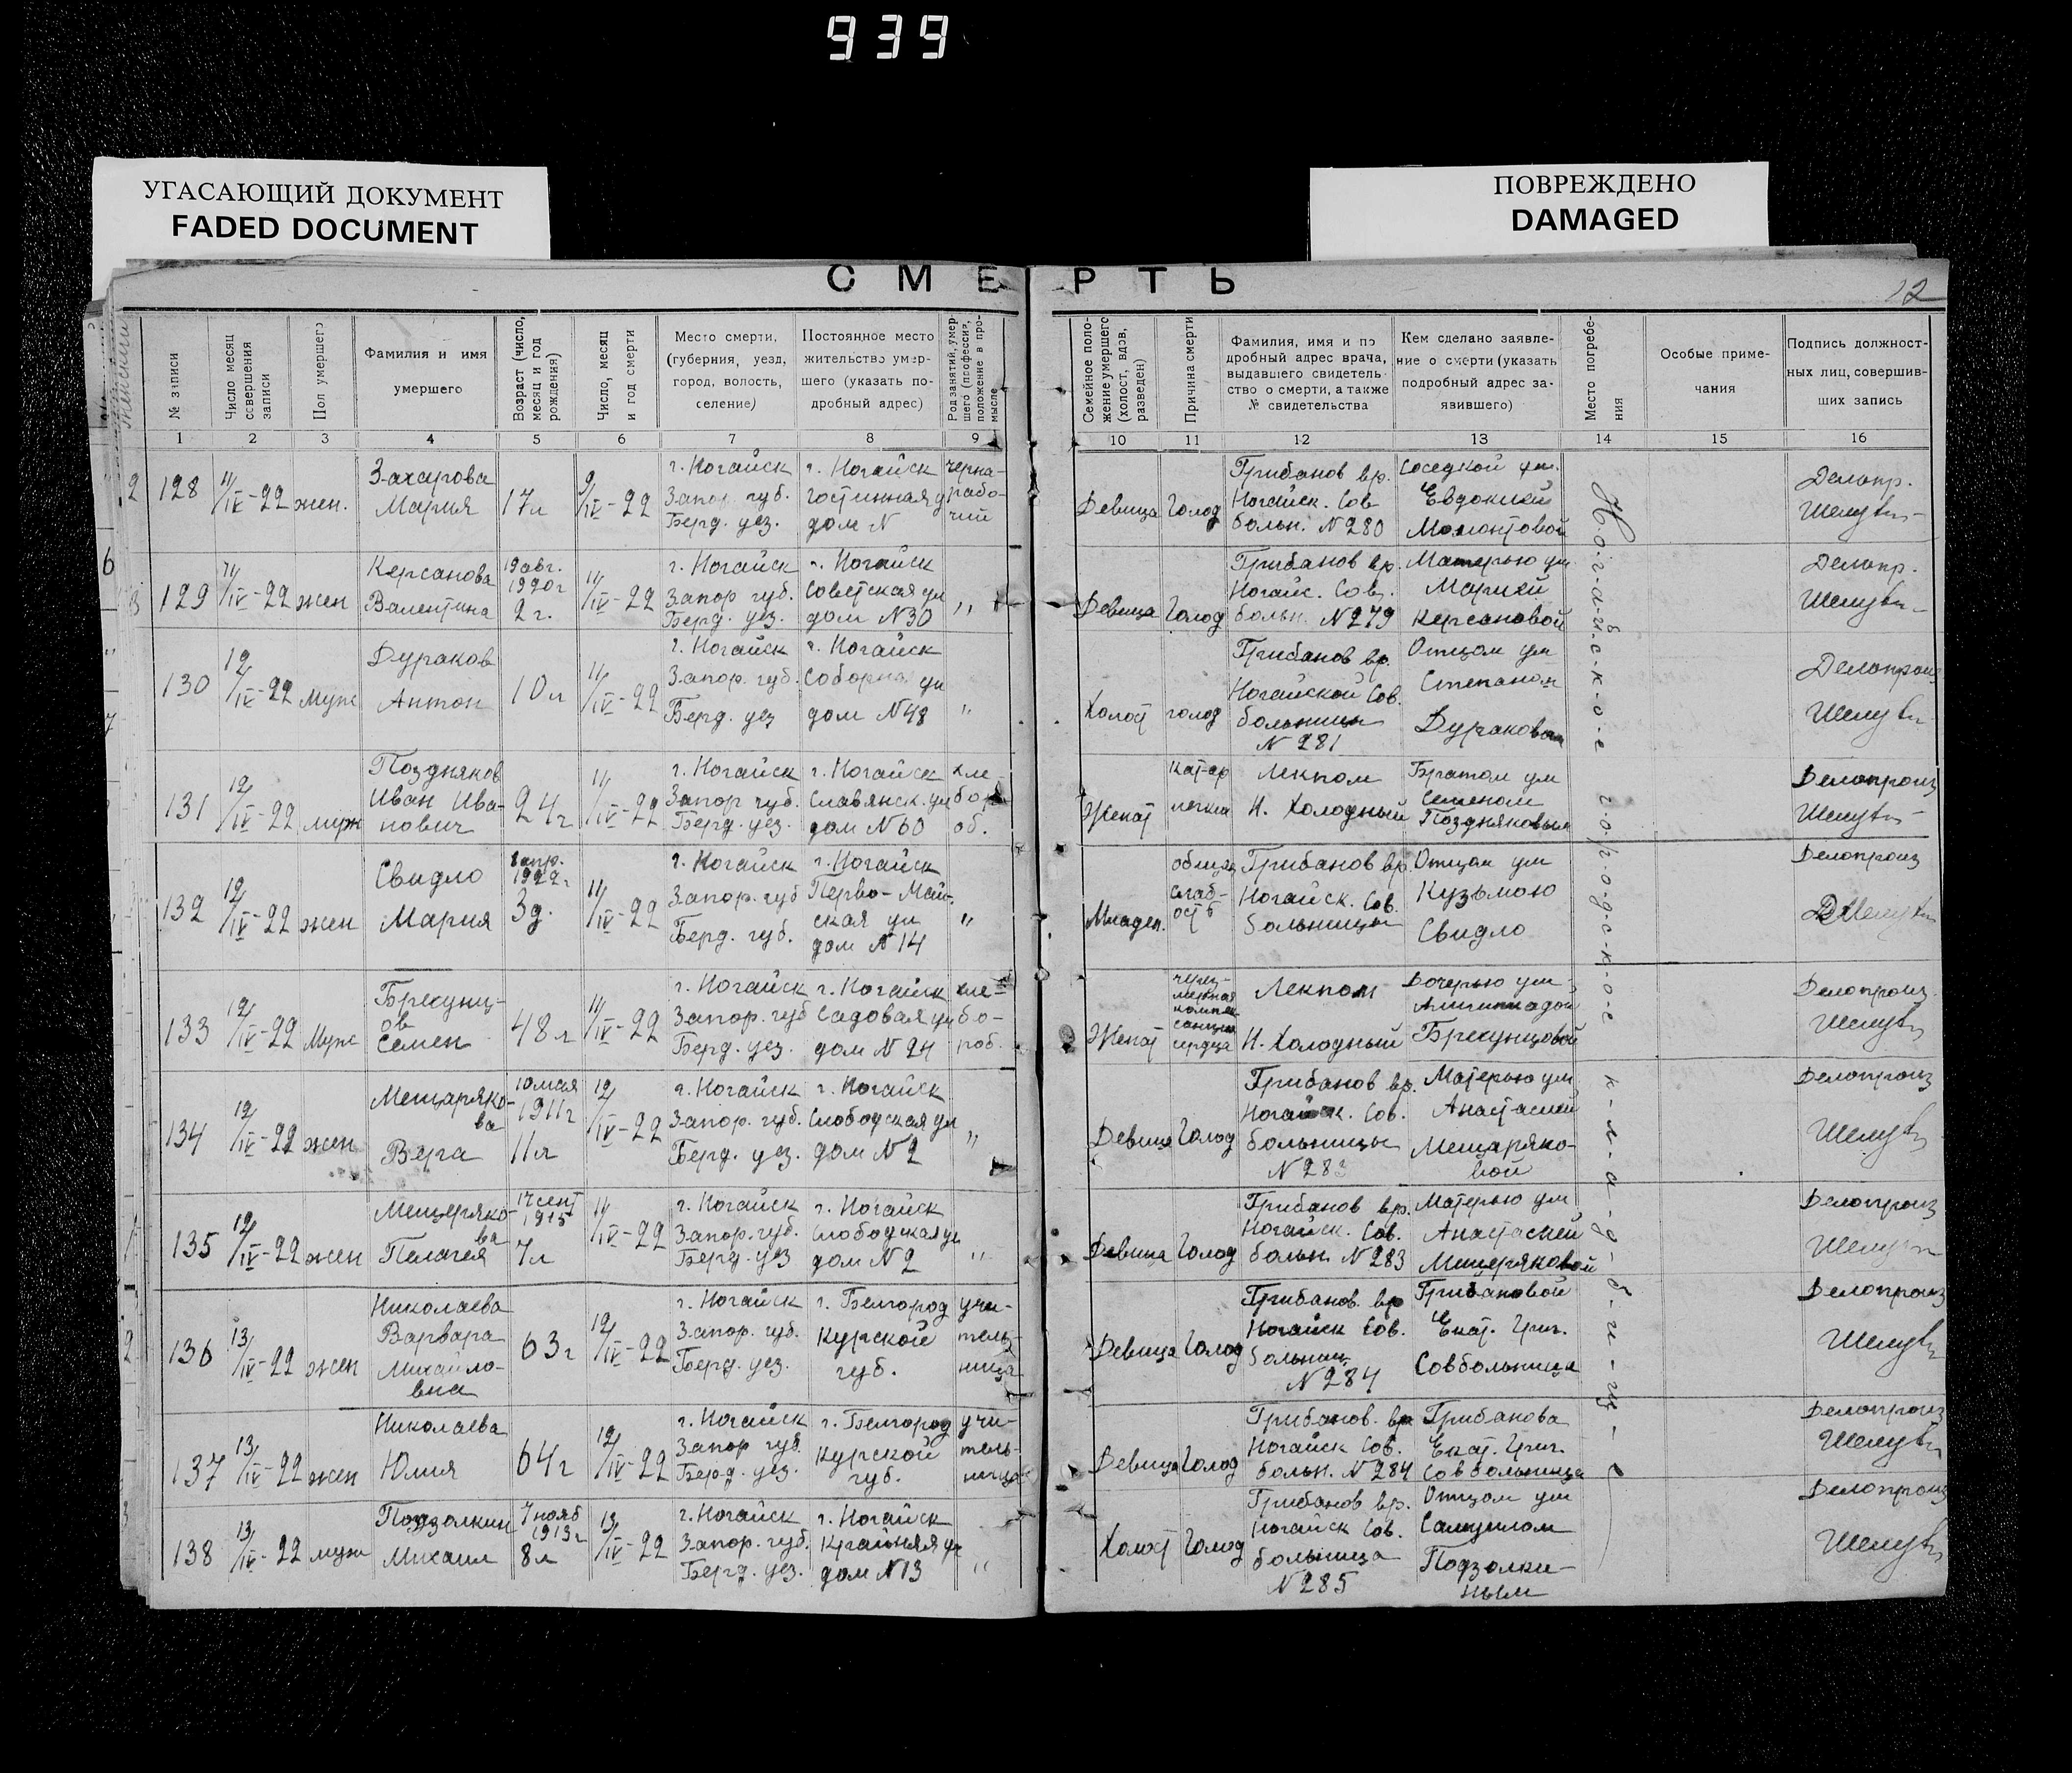 939
УГАСАЮЩИЙ ДОКУМЕНТ
FADED DOCUMENT
ПОВРЕЖДЕНО
DAMAGED
СМЕРТЬ
12
№ записи
Число месяц совершения записи
Пол умершего
Фамилия и имя умершего
Возраст (число, месяц и год рождения)
Число, месяц и год смерти
Место смерти, (губерния, уезд, город, волость, селение)
Постоянное место жительство умершего (указать подробный адрес)
Род занятий, умершего (профессия, положение в промысле
Семейное положение умершего (холост, вдов, разведен)
Причина смерти
Фамилия, имя и подробный адрес врача, выдавшего свидетельство о смерти, а также № свидетельства
Кем сделано заявление о смерти (указать подробный адрес заявившего)
Место погребения
Особые примечания
Подпись должностных лиц, совершивших запись
1 2 3 4 5 6 7 8 9 10 11 12 13 14 15 16
128 11/IV-22 жен. Захарова Мария 17л 9/IV-22 г. Ногайск Запор. губ. Берд. уез. г. Ногайск Гостинная у дом N черно-рабо-чий
Девица Голод Грибанов вр. Ногайск. Сов больн. N 280 Соседкой ум. Евдокией Мамонтовой Делопр.
129 11/IV-22 жен Керсанова Валентина 19 авг. 1920г 2 г. 11/IV-22 г. Ногайск Запор губ. Берд. уез. г. Ногайск Советская ул дом N30 "
Девица Голод Грибанов вр. Ногайс. Сов. больн. N 279 Матерью ум Марией Керсановой Делопр.
130 12/IV-22 Муж Дураков Антон 10л 11/IV-22 г. Ногайск Запор. губ. Берд. уез г. Ногайск Соборная ул дом N48 "
Холост голод Грибанов вр. Ногайской Сов. больницы N 281 Отцом ум Степаном Дураковым Делопроиз
131 12/IV-22 муж Поздняков Иван Ива-нович 24г 11/IV-22 г. Ногайск Запор губ. Берд. уез. г. Ногайск Славянск. ул дом N60 хле-бороб.
Женат Лекпом Н. Холодный Братом ум Семеном Поздняковым Делопроиз
132 12/IV-22 жен Свидло Мария 8 апр. 1922г 3д. 11/IV-22 г. Ногайск Запор. губ Берд. губ. г. Ногайск Перво-Май-ская ул дом N 14 "
Младен. общая слаб-ость Грибанов вр. Ногайск. Сов. больницы Отцом ум Кузьмою Свидло Делопроиз
133 12/IV-22 Муж Брехунц-ов Семен 48л 11/IV-22 г. Ногайск Запор. губ Берд. уез. г. Ногайск Садовая ул дом N 24 хле-бо-роб.
Женат сердца Лекпом Н. Холодный Дочерью ум Брехунцовой Делопроиз.
134 12/IV-22 жен Мещеряко-ва Вера 10 мая 1911г 11л 12/IV-22 г. Ногайск Запор. губ. Берд. уез. г. Ногайск Слободская ул дом N 2 "
Девица Голод Грибанов вр. Ногайск. Сов. больницы N 283 Матерью ум Анастасией Мещеряко-вой Делопроиз
135 12/IV-22 жен Мещеряко-ва Пелагея 17 сент 1915 7л 11/IV-22 г. Ногайск Запор. губ. Берд. уез г. Ногайск Слободская ул дом N 2 "
Девица Голод Грибанов вр. Ногайск. Сов. больн. N 283 Матерью ум Анастасией Мещеряковой Делопроиз
136 13/IV-22 жен Николаева Варвара Михайло-вна 63г 12/IV-22 г. Ногайск Запор. губ. Берд. уез. г. Белгород Курской губ. учи-тель-ница
Девица Голод Грибанов. вр Ногайск Сов. больниц N 284 Грибановой Екат. Григ. Совбольница Делопроиз
137 13/IV-22 жен Николаева Юлия 64г 12/IV-22 г. Ногайск Запор губ. Берд. уез. г. Белгород Курской губ. учи-тель-ница
Девица Голод Грибанов. вр Ногайск Сов. больн. N 284 Грибанова Екат. Григ. Совбольница Делопроиз
138 13/IV-22 муж Подзолкин Михаил 7 нояб 1913г 8л 13/IV-22 г. Ногайск Запор. губ. Берд. уез. г. Ногайск Крайняя ул дом N13 "
Холост Голод Грибанов вр. Ногайск Сов. больница N 285 Отцом ум Самуилом Подзолки-ным Делопроиз
Н-о-г-а-й-с-к-о-е г-о-р-о-д-с-к-о-е к-л-а-д-б-и-щ-е